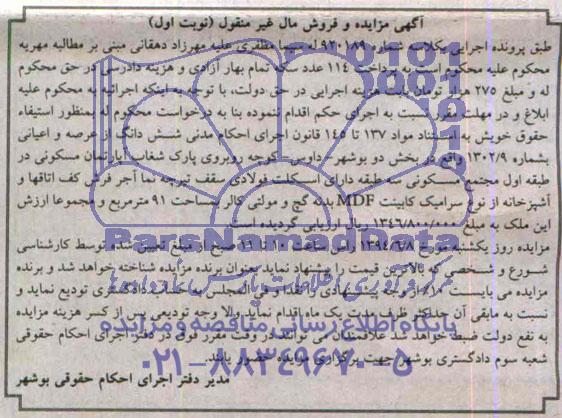 آگهی مزایده و فروش مال غیر منقول (نوبت اول)
طبق پرونده اجرایی بکلاسه شماره ۹۲۰۱۸۹ له سیما مظفری علیه مهرزاد دهقانی مبنی بر مطالبه مهریه
محکوم علیه محکوم است به پرداخت ۱۱۴ عدد سکه تمام بهار آزادی و هزینه دادرسی در حق محکوم
له و مبلغ ۲۷۵ هزار تومان بابت هزینه اجرایی در حق دولت، با توجه به اینکه اجرائیه به محکوم علیه
ابلاغ و در مهلت مقرر نسبت به اجرای حکم اقدام ننموده بنا به درخواست محکوم له بمنظور استیفاء
حقوق خویش به استناد مواد ۱۳۷ تا ۱۴۵ قانون اجرای احکام مدنی شش دانگ از عرصه و اعیانی
بشماره ۱۳۰۲/۹ واقع در بخش دو بوشهر - کوچه روبروی پارک شغاب آپارتمان مسکونی در
طبقه اول مجتمع مسکونی سه طبقه دارای اسکلت فولادی سقف تیرچه نما آجر فرش کف اتاقها و
آشپزخانه از نوع سرامیک کابینت MDF بدنه گچ و مولتی کالر بمساحت ۹۱ مترمربع و مجموعا ارزش
این ملک به مبلغ ریال ارزیابی گردیده است
مزایده روز یکشنبه مورخ ۱۳۹۴/۶/۸ راس ساعت ۱۰ تا ۱۱ صبح از مبلغ تعیین شده توسط کارشناسی
شروع و شخصی که بالاترین قیمت را پیشنهاد نماید بعنوان برنده مزایده شناخته خواهد شد و برنده
مزایده می بایست ۱۰٪ از وجه پیشنهادی را نقدا و فی المجلس به حساب دادگستری تودیع نماید و
نسبت به مابقی آن حداکثر ظرف مدت یک ماه اقدام نماید والا وجه تودیعی پس از کسر هزینه مزایده
به نفع دولت ضبط خواهد شد علاقمندان می توانند در وقت مقرر فوق در دفتر اجرای احکام حقوقی
شعبه سوم دادگستری بوشهر جهت برگزاری مزایده حضور یابند.
مدیر دفتر اجرای احکام حقوقی بوشهر
ParsNamadData
مرکز فرآوری اطلاعات پارس نماد داده ها
پایگاه اطلاع رسانی مناقصه و مزایده
۰۲۱-۸۸۳۴۹۶۷۰-۵